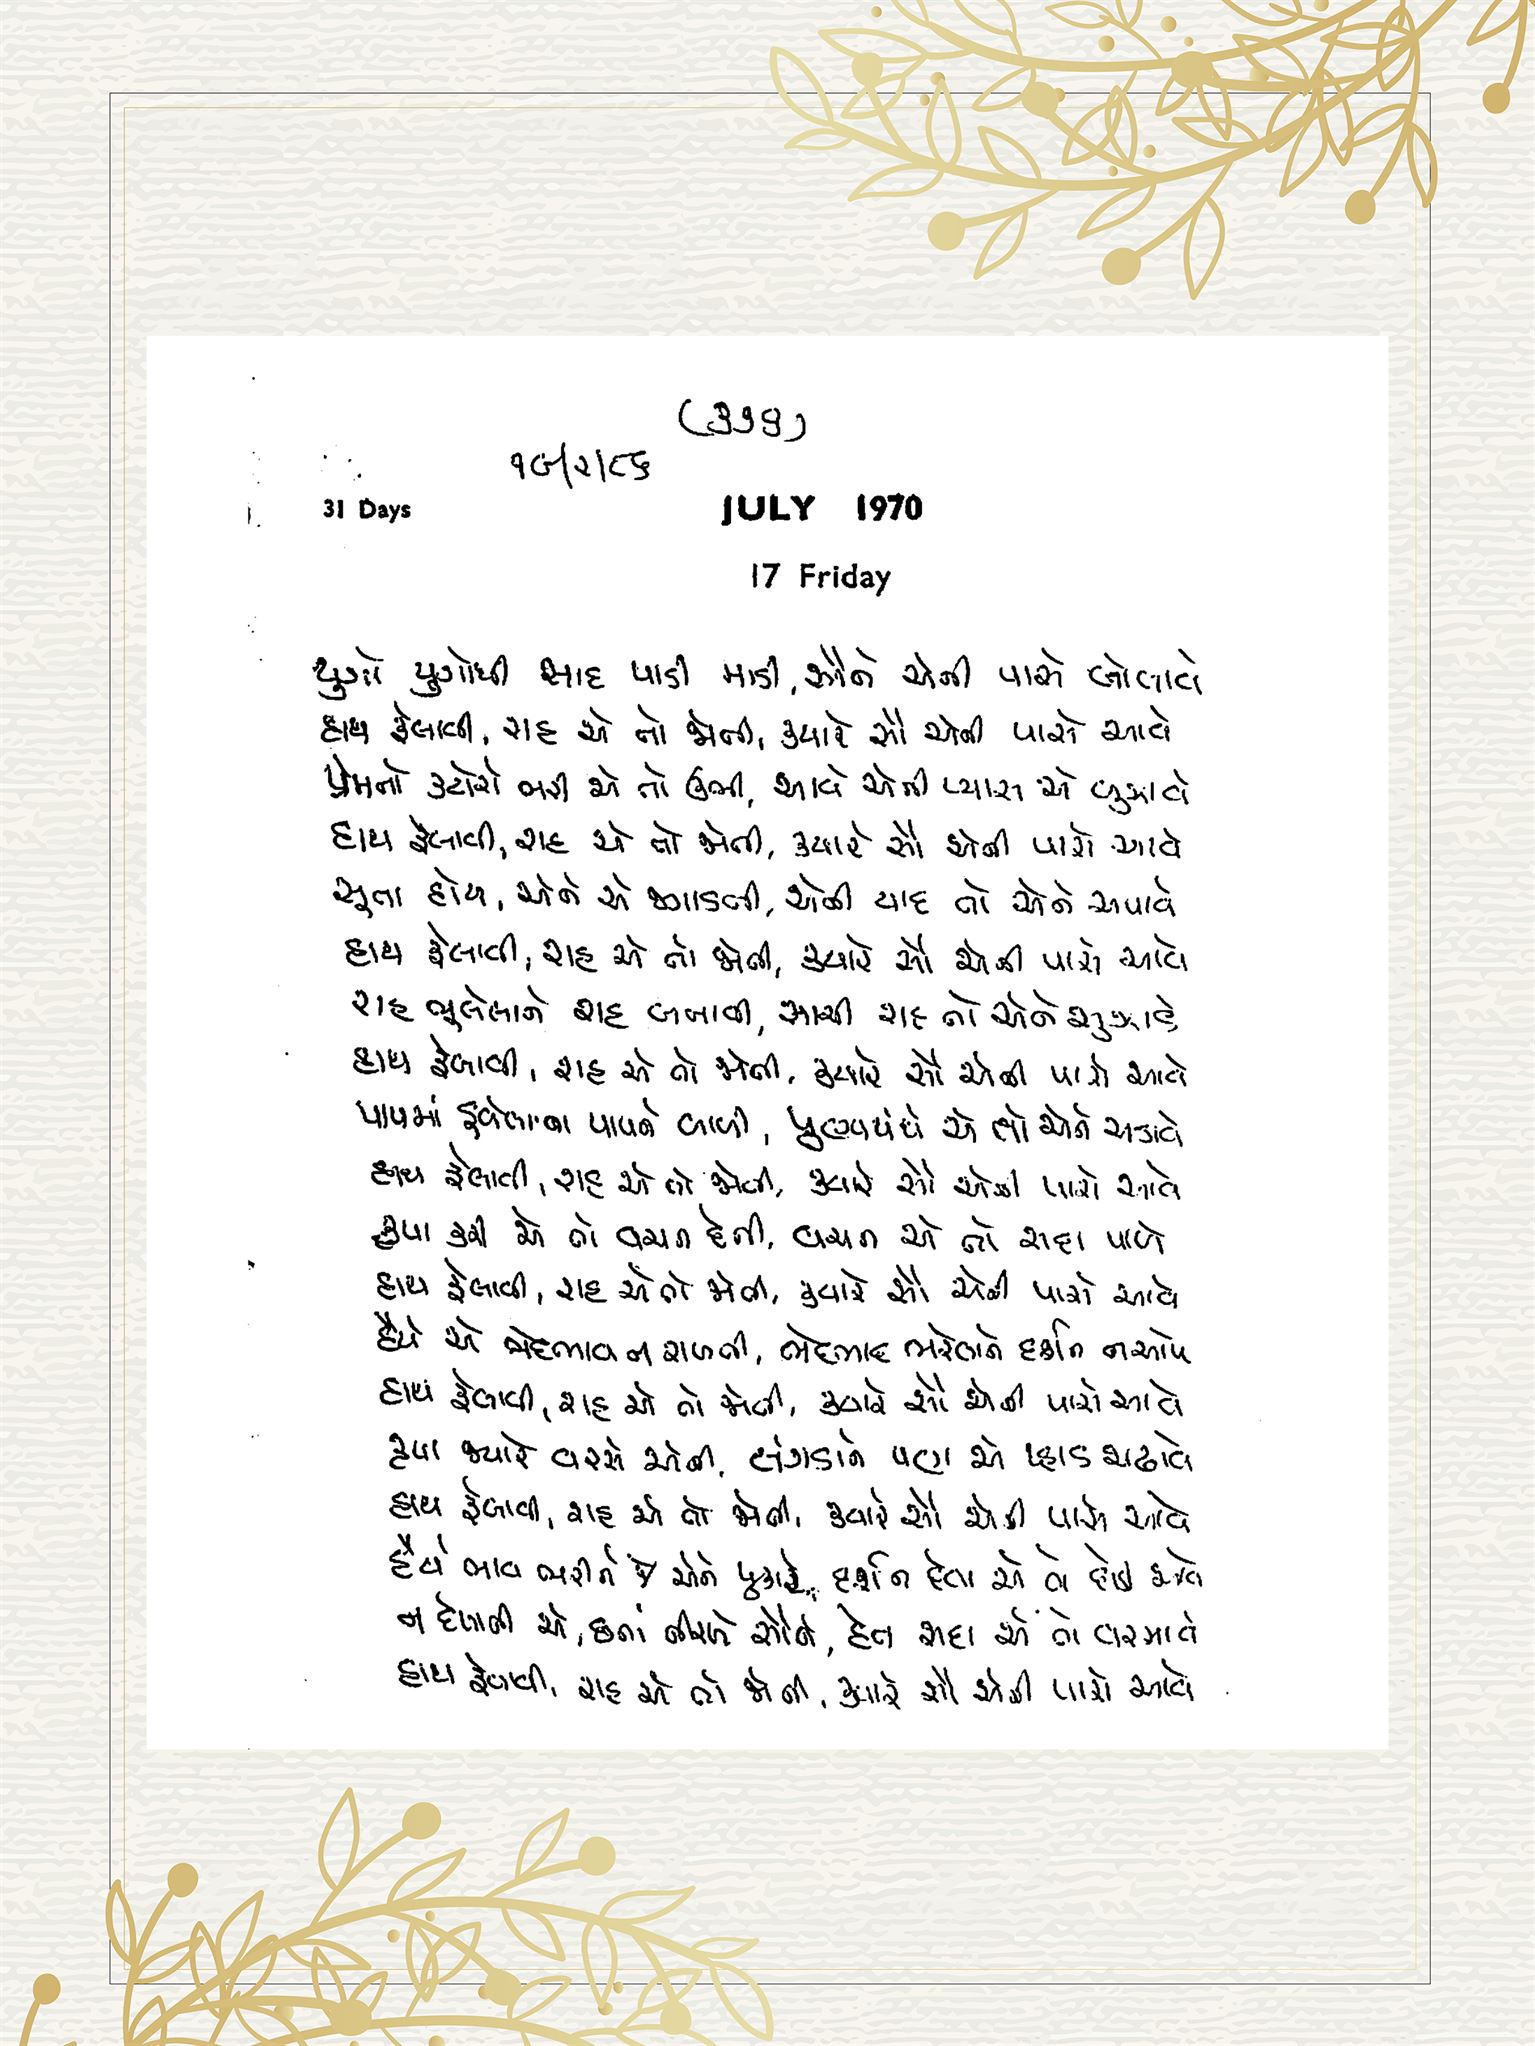 ૧૯/૨/૮૬
31 Days JULY 1970
17 Friday
યુગો યુગોથી સાદ પાડી માડી, સૌને એની પાસે બોલાવે
હાથ ફેલાવી, રાહ એ તો જોતી, ક્યારે સૌ એની પાસે આવે
પ્રેમનો કટોરો ભરી એ તો ઊભી, આવે એની પ્યાસ એ બુઝાવે
હાથ ફેલાવી, રાહ એ તો જોતી, ક્યારે સૌ એની પાસે આવે
સૂતા હોય, એને એ જગાડતી, એની યાદ તો એને અપાવે
હાથ ફેલાવી, રાહ એ તો જોતી, ક્યારે સૌ એની પાસે આવે
રાહ ભૂલેલાને રાહ બતાવી, સાચી રાહ તો એને સુઝાડે
હાથ ફેલાવી, રાહ એ તો જોતી, ક્યારે સૌ એની પાસે આવે
પાપમાં ડૂબેલાના પાપને બાળી, પુણ્યપંથે એ તો એને ચડાવે
હાથ ફેલાવી, રાહ એ તો જોતી, ક્યારે સૌ એની પાસે આવે
કૃપા કરી એ તો વચન દેતી, વચન એ તો સદા પાળે
હાથ ફેલાવી, રાહ એ તો જોતી, ક્યારે સૌ એની પાસે આવે
હૈયે એ ભેદભાવ ન રાખતી, ભેદભાવ ભરેલાને દર્શન ન આપે
હાથ ફેલાવી, રાહ એ તો જોતી, ક્યારે સૌ એની પાસે આવે
કૃપા જ્યારે વરસે એની, લંગડાને પણ એ પ્હાડ ચઢાવે
હાથ ફેલાવી, રાહ એ તો જોતી, ક્યારે સૌ એની પાસે આવે
હૈયે ભાવ ભરીને જે એને પુકારે, દર્શન દેવા એ તો દોડી આવે
ન દેખાતી એ, છતાં નીરખે સૌને, હેત સદા એ તો વરસાવે
હાથ ફેલાવી, રાહ એ તો જોતી, ક્યારે સૌ એની પાસે આવે